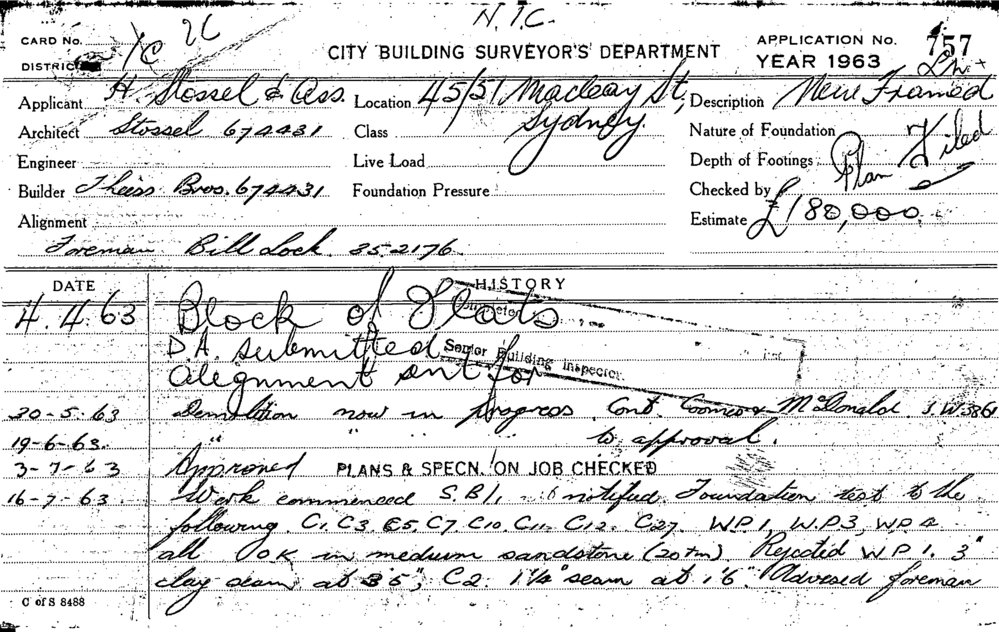 N.I.C.
CARD No. 1C 2C
CITY BUILDING SURVEYOR'S DEPARTMENT
APPLICATION No. 157
DISTRICT
YEAR 1963
Applicant H. Stossel & Ass. Location 45/51 Macleay St, Description New Framed
Architect Stossel 674431 Class Sydney. Nature of Foundation
Engineer Live Load Depth of Footings Plan Filed
Builder Theiss Bros. 674431 Foundation Pressure Checked by
Alignment Estimate £180,000.
Foreman Bill Lock 35.2176
DATE HISTORY
4.4.63 Block of Flats
D.A. submitted
Senior Building Inspector
alegnment ant for
20-5-63 demolition now in progress. Cont. McDonald. J.W.3861
19-6-63. " " " to approval.
3-7-63 Approved PLANS & SPECN. ON JOB CHECKED
16-7-63. Work commenced S.B/1. notified Foundation test to the
following. C1. C3. C5. C7. C10. C11. C12. C27. W.P.1, W.P.3, W.P.4
all OK in medium sandstone (20 tm). Rejected W.P.1. 3"
clay seam at 3'5", C2. 1¼" seam at 1'6". Advised foreman
C of S 8488